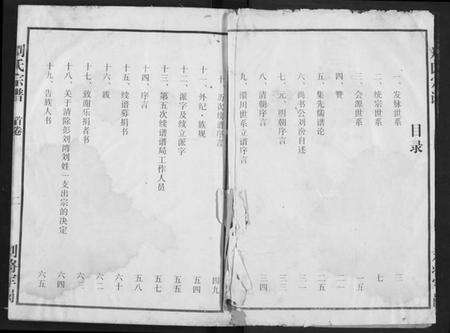 目录
一、发脉世系 三
二、统宗世系 七
三、会源世系 一五
四、赞 二一
五、集先儒谱论 二五
六、尚书公刘汾自述
七、元、明朝序言 三一
八、清朝序言 三四
九、澴川世系立谱序言
十、历次续谱序言 四九
十一、外纪·族规 五四
十二、派字及续立派字 五五
十三、第五次续谱谱局工作人员 五七
十四、序言 五八
十五、续谱募捐书
十六、跋 六十
十七、致谢乐捐者书 六二
十八、关于清除彭刘湾刘姓一支出宗的决定 六四
十九、告族人书 六五
刘氏宗谱 首卷 一